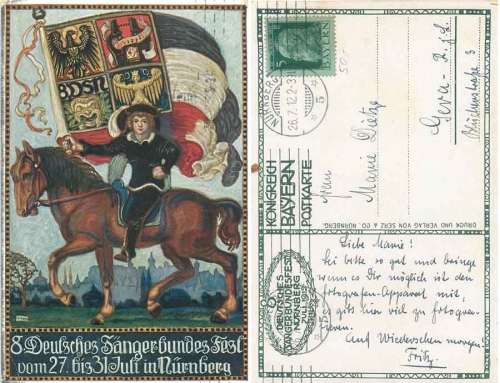 BDSB
8. Deutsches Sängerbundes Fest
vom 27. bis 31. Juli in Nürnberg
5
BAYERN
NÜRNBERG
26.7.12.2-3
5
50.-
KÖNIGREICH
BAYERN
POSTKARTE
Frau
Marie Dietze
Gera - R.j.L.
DRUCK UND VERLAG VON SERZ & CO NÜRNBERG.
8
DEUTSCHES
SÄNGERBUNDESFEST
NÜRNBERG
Liebe Marie!
Sei bitte so gut und bringe
wenn es Dir möglich ist den
Fotografen-Apparat mit,
gibts hier viel zu fotogra-
fieren.
Auf Wiedersehen morgen
Fritz.